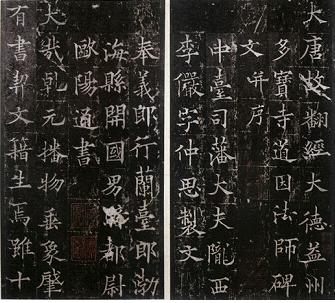 大唐故翻經大德益州
多寶寺道因法師碑
文并序
中臺司藩大夫隴西
李儼字仲思製文
奉義郎行蘭臺郎渤
海縣開國男騎都尉
歐陽通書
大哉乾元播物垂象肇
有書契文籍生焉雖十